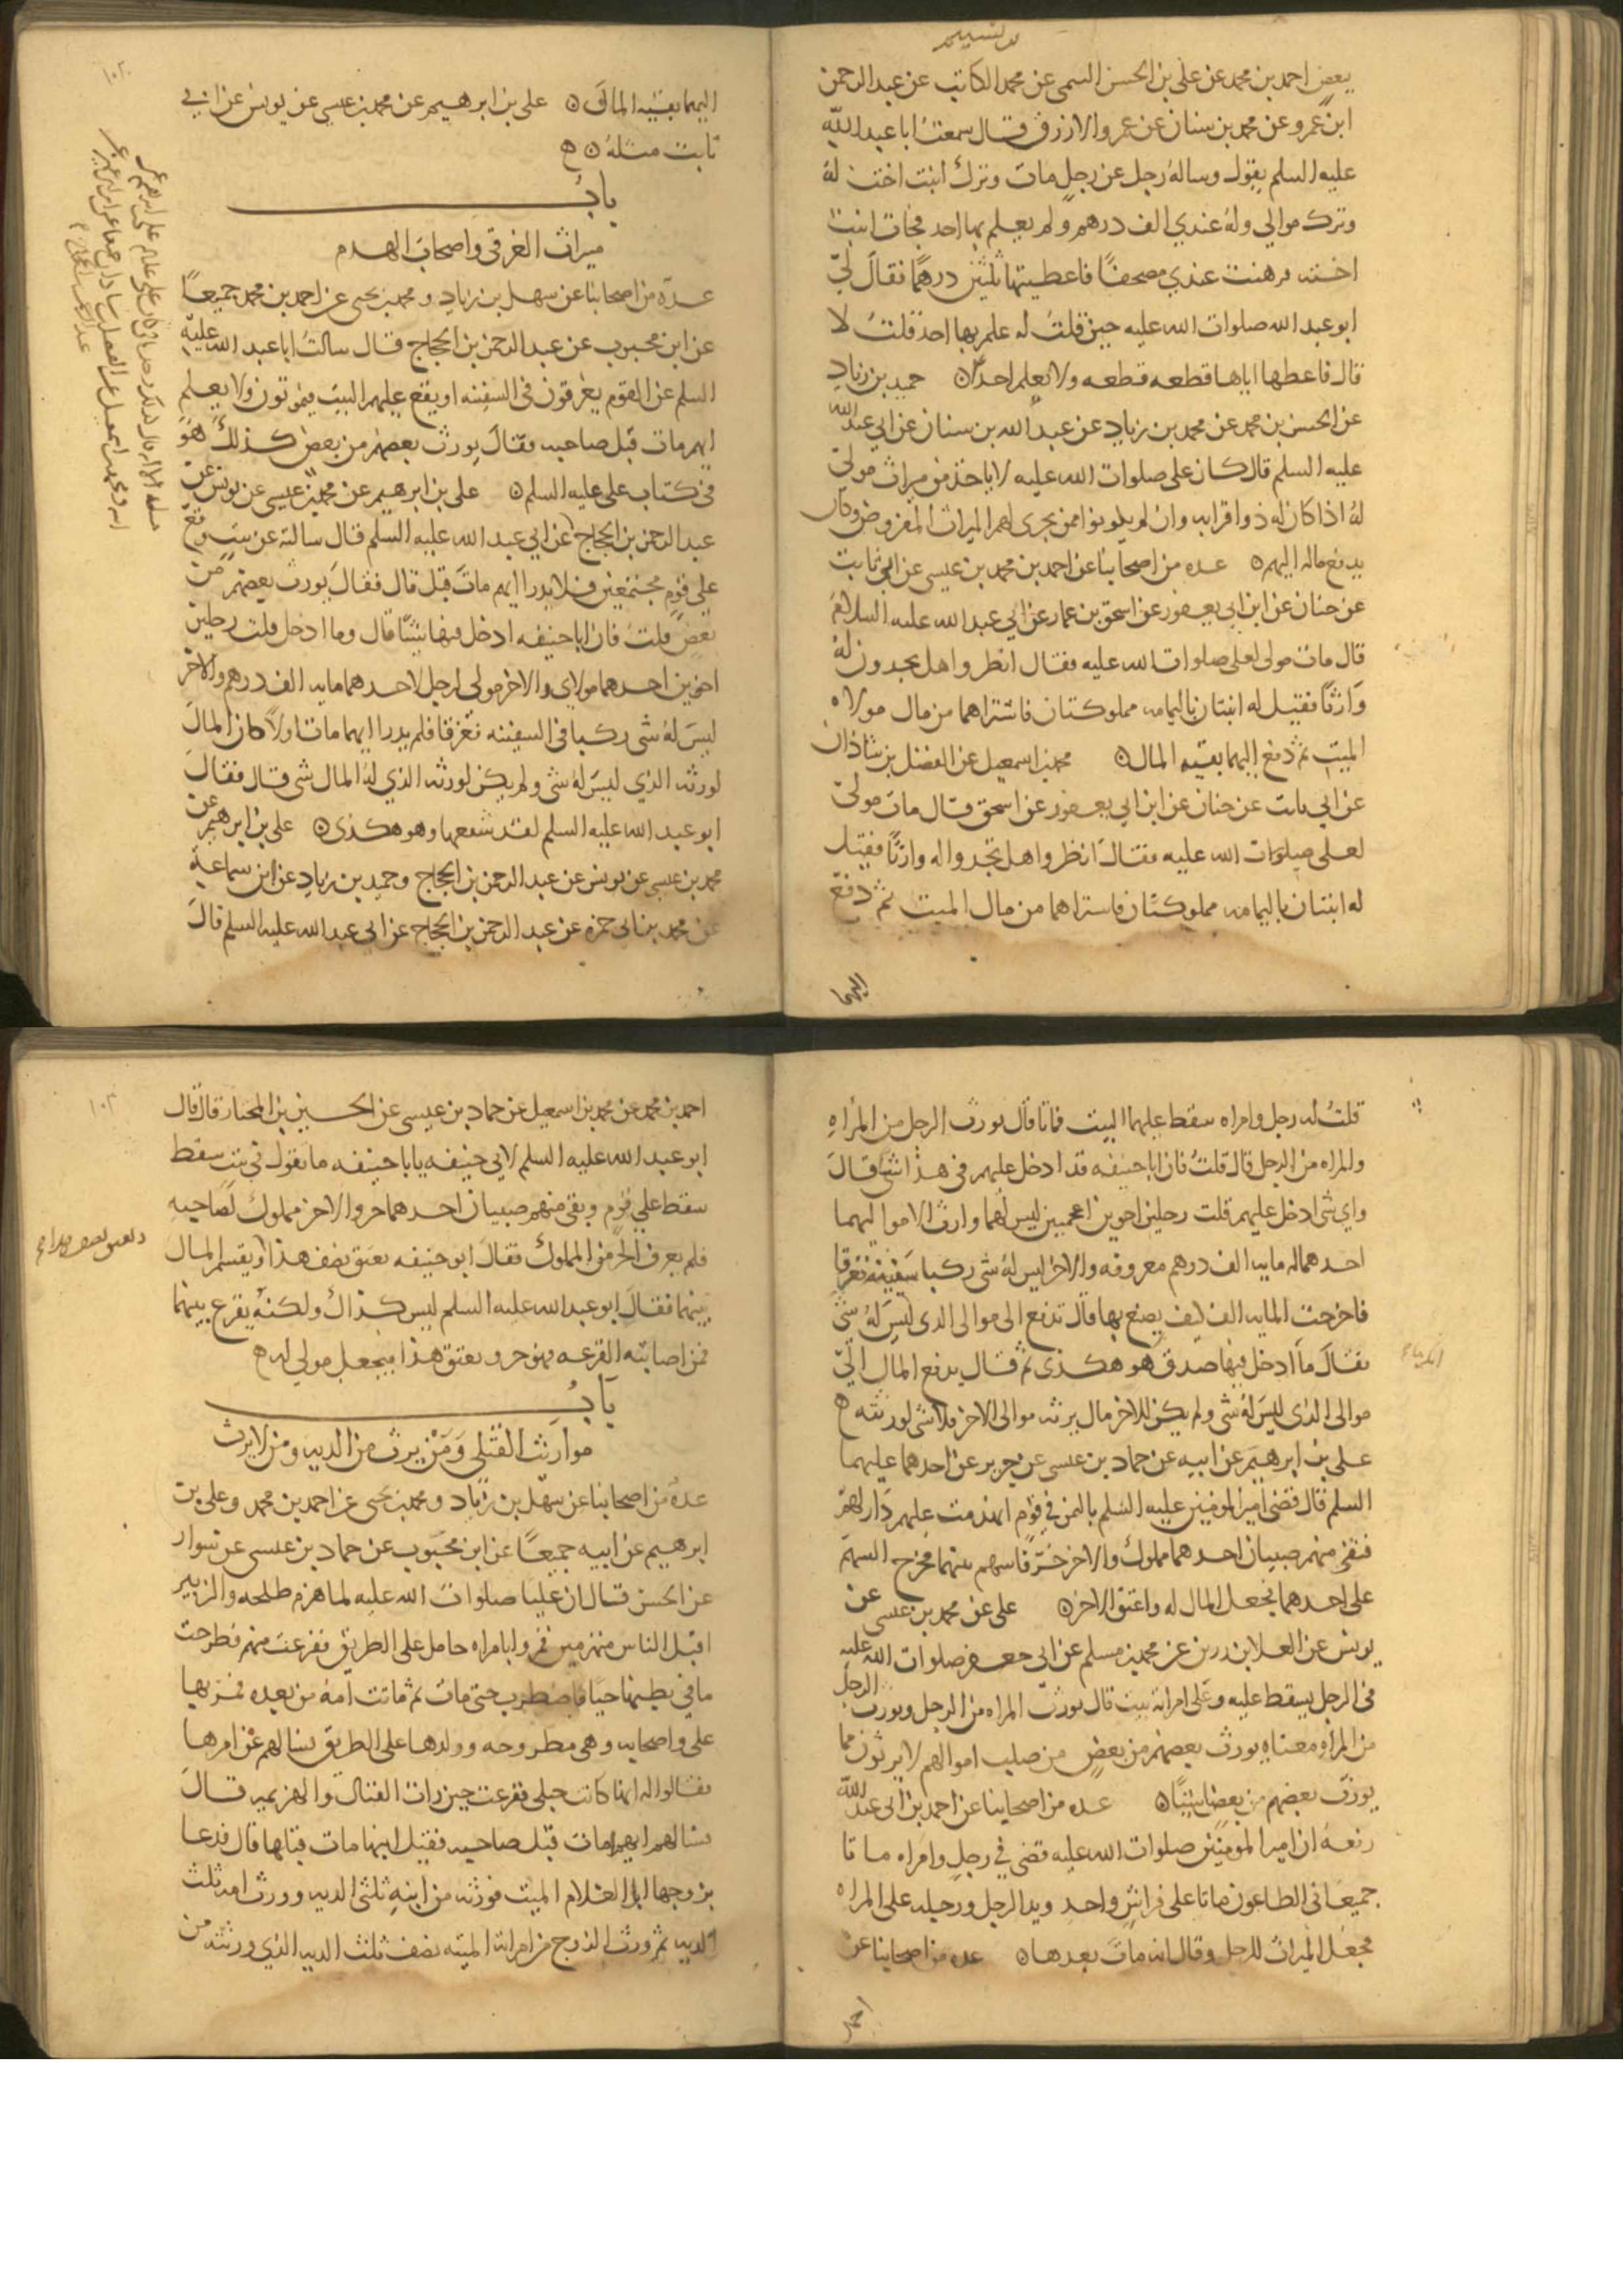 بعض احمد بن محمد عن علي بن الحسن التيمي عن محمد الكاتب عن عبد الرحمن
ابن عمرو عن محمد بن سنان عن عمرو الازرق قال سمعت ابا عبد الله
عليه السلم يقول وساله رجل عن رجل مات وترك ابنت اخت له
وترك موالي وله عندي الف درهم ولم يعلم بها احد فجات ابنت
اخته فرهنت عندي مصحفا فاعطيتها ثلثين درهما فقال لي
ابو عبد الله صلوات الله عليه حين قلت له علم بها احد قلت لا
قال فاعطها اياها قطعه قطعه ولا تعلم احدا ۞ حميد بن زياد
عن الحسن بن محمد عن محمد بن زياد عن عبد الله بن سنان عن ابي عبد الله
عليه السلم قال كان علي صلوات الله عليه لا ياخذ من ميراث مولى
له اذا كان له ذو اقرابه وان لم يكونوا ممن يجرى لهم الميراث المفروض وكان
يدفع ماله اليهم ۞ عده من اصحابنا عن احمد بن محمد بن عيسى عن ابي ثابت
عن حنان عن ابن ابي يعفور عن اسحق بن عمار عن ابي عبد الله عليه السلام
قال مات مولى لعلي صلوات الله عليه فقال انظروا هل يجدون له
وارثا فقيل له ابنتان باليمامه مملوكتان فاشتراهما من مال مولاه
الميت ثم دفع اليهما بقيه المال ۞ محمد بن اسمعيل عن الفضل بن شاذان
عن ابي ثابت عن حنان عن ابن ابي يعفور عن اسحق قال مات مولى
لعلي صلوات الله عليه فقال انظروا هل تجدوا له وارثا فقيل
له ابنتان باليمامه مملوكتان فاستراهما من مال الميت ثم دفع
اليهما
اليهما بقيه المال ۞ علي بن ابرهيم عن محمد بن عيسى عن يونس عن ابي
ثابت مثله ۞ ه
باب
ميراث الغرقى واصحاب الهدم
عدة من اصحابنا عن سهل بن زياد ومحمد بن يحيى عن احمد بن محمد جميعا
عن ابن محبوب عن عبد الرحمن بن الحجاج قال سالت ابا عبد الله عليه
السلم عن القوم يغرقون في السفينه او يقع عليهم البيت فيموتون ولا يعلم
ايهم مات قبل صاحبه فقال يورث بعضهم من بعض كذلك هو
في كتاب علي عليه السلم ۞ علي بن ابرهيم عن محمد بن عيسى عن يونس عن
عبد الرحمن بن الحجاج عن ابي عبد الله عليه السلم قال سالته عن بيت وقع
علي قوم مجتمعين فلا يدرا ايهم مات قبل قال فقال يورث بعضهم من
بعض قلت فان ابا حنيفه ادخل فيها شيئا قال وما ادخل قلت رجلين
اخوين احدهما مولاي والاخر مولى لرجل لاحدهما مايه الف درهم والاخر
ليس له شى ركبا في السفينه فغرقا فلم يدرا ايهما مات اولا كان المال
لورثه الذي ليس له شى ولم يكن لورثه الذي له المال شى قال فقال
ابو عبد الله عليه السلم لقد شنعها وهو هكذى ۞ علي بن ابرهيم عن
محمد بن عيسى عن يونس عن عبد الرحمن بن الحجاج وحميد بن زياد عن ابن سماعة
عن محمد بن ابي حمزه عن عبد الرحمن بن الحجاج عن ابي عبد الله عليه السلم قال
قلت له رجل وامراه سقط عليهما البيت فماتا قال يورث الرجل من المراه
والمراه من الرجل قال قلت فان ابا حنيفه قد ادخل عليهم في هذا شيا قال
واي شى ادخل عليهم قلت رجلين اخوين اعجميين ليس لهما وارث الا مواليهما
احدهما له مايه الف درهم معروفه والاخر ليس له شى ركبا سفينة فغرقا
فاخرجت المايه الف كيف يصنع بها قال تدفع الى موالي الذى ليس له شى
فقال ما ادخل فيها صدق هو هكذى ثم قال يدفع المال الي
موالى الذى ليس له شى ولم يكن للاخر مال يرثه موالي الاخر فلا شى لورثته ه
علي بن ابرهيم عن ابيه عن حماد بن عيسى عن حريز عن احدهما عليهما
السلم قال قضى امير المومنين عليه السلم باليمن في قوم انهدمت عليهم دار لهم
فبقى منهم صبيان احدهما مملوك والاخر حر فاسهم بينهما فخرج السهم
على احدهما فجعل المال له واعتق الاخر ۞ علي عن محمد بن عيسى عن
يونس عن العلا بن رزين عن محمد بن مسلم عن ابي جعفر صلوات الله عليه
في الرجل يسقط عليه وعلى امراته بيت قال يورث المراه من الرجل ويورث الرجل
من المراه معناه يورث بعضهم من بعض من صلب اموالهم لا يرثون مما
يورث بعضهم من بعض شيئا ۞ عده من اصحابنا عن احمد بن ابي عبد الله
رفعه ان امير المومنين صلوات الله عليه قضى في رجل وامراه ماتا
جميعا في الطاعون ماتا على فراش واحد ويد الرجل ورجله على المراه
فجعل الميراث للرجل وقال انه مات بعدها ۞ عده من اصحابنا عن
احمد
احمد بن محمد عن محمد بن اسمعيل عن حماد بن عيسى عن الحسين بن المختار قال قال
ابو عبد الله عليه السلم لابي حنيفه يابا حنيفه ما تقول في بيت سقط
سقط علي قوم وبقى منهم صبيان احدهما حر والاخر مملوك لصاحبه
فلم يعرف الحر من المملوك فقال ابو حنيفه يعتق نصف هذا ويقسم المال
بينهما فقال ابو عبد الله عليه السلم ليس كذاك ولكنه يقرع بينهما
فمن اصابته القرعه فهو حر ويعتق هذا فيجعل مولى له ه
باب
مواريث القتلى ومن يرث من الديه ومن لا يرث
عدة من اصحابنا عن سهل بن زياد ومحمد بن يحيى عن احمد بن محمد وعلي بن
ابرهيم عن ابيه جميعا عن ابن محبوب عن حماد بن عيسى عن سوار
عن الحسن قال ان عليا صلوات الله عليه لما هزم طلحه والزبير
اقبل الناس منهزمين فمروا بامراه حامل على الطريق ففزعت منهم فطرحت
ما في بطنها حيا فاضطرب حتى مات ثم ماتت امه من بعده فمر بها
علي واصحابه وهي مطروحه وولدها على الطريق فسالهم عن امرها
فقالوا له انها كانت حبلى ففزعت حين رات القتال والهزيمه قال
فسالهم ايهما مات قبل صاحبه فقيل ابنها مات قبلها قال فدعا
بزوجها ابا الغلام الميت فورثه من ابنه ثلثي الديه وورث امه ثلث
الديه ثم ورث الزوج من امراته الميته نصف ثلث الديه الذي ورثته من